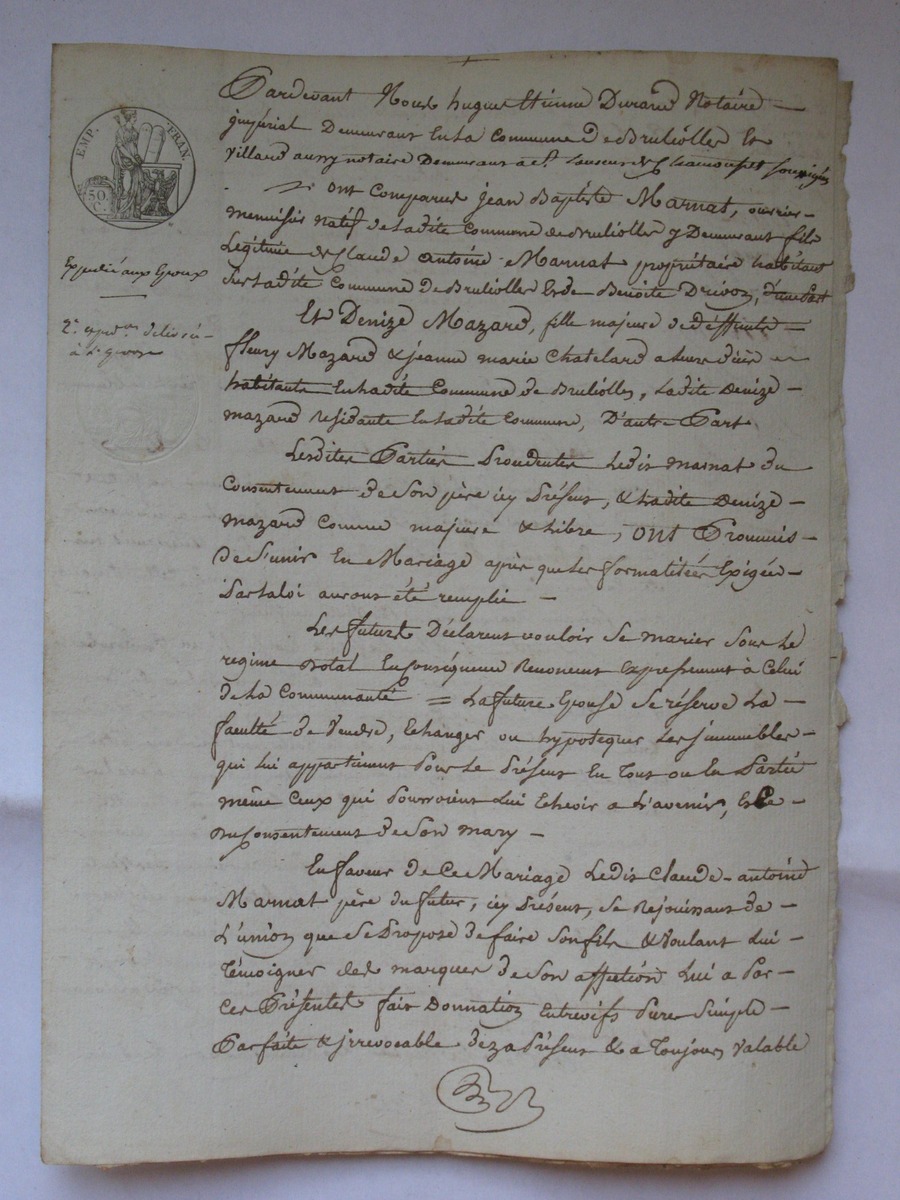 EMP. FRAN.
50. C.
Expedié aux Epoux
2e expon delivrée
à l'epoux
Pardevant Nous hugues Etienne Durand Notaire
jmpérial Demeurant En La Commune de Brulliolles Et
Villard aussy notaire Demeurant a St Laurent de Chamousset soussignés
ont Comparus jean Baptiste Marnat, ouvrier
menuisier natif de Ladite Commune de Brulliolles y Demeurant fils
Légitime de Claude Antoine Marnat propriétaire habitant
Sur Ladite Commune de Brulliolles Et de Benoite Drivon, d'une Part
Et Denize Mazard, fille majure de deffunts
fleury Mazard & jeanne marie Chatelard
habitante En Ladite Commune de Brulliolles, Ladite Denize
mazard Residante En Ladite Commune, D'autre Part
Lesdites Parties Procedentes Ledit marnat du
Consentement de Son père icy Présent, & Ladite Denize
mazard Comme majure & Libre, ont Promis
de S'unir En Mariage après que Les formalitées Exigées
Par La loi auront été remplie
Les futurs Déclarent vouloir Se marier Sous Le
regime Dotal En Conséquence Renoncent Expressement à Celui
de La Communauté = La future Epouse Se réserve La
faculté de Vendre, Echanger ou hypotequer Les jmmeubles
qui Lui appartiennent Pour Le Présent En Tout ou En Partie
même Ceux qui Pourroient Lui Echeoir a L'avenir, Et Ce
du Consentement de Son mary
En faveur de Ce Mariage Ledit Claude antoine
Marnat père du futur, icy Présent, Se Rejouissant de
L'union que Se Propose de faire Son fils & Voulant Lui
Témoigner des marques de Son affection Lui a Par
Ces Présentes fait Donnation Entrevifs Pure Simple
Parfaite & jrrevocable deza Présent & a Toujours Valable